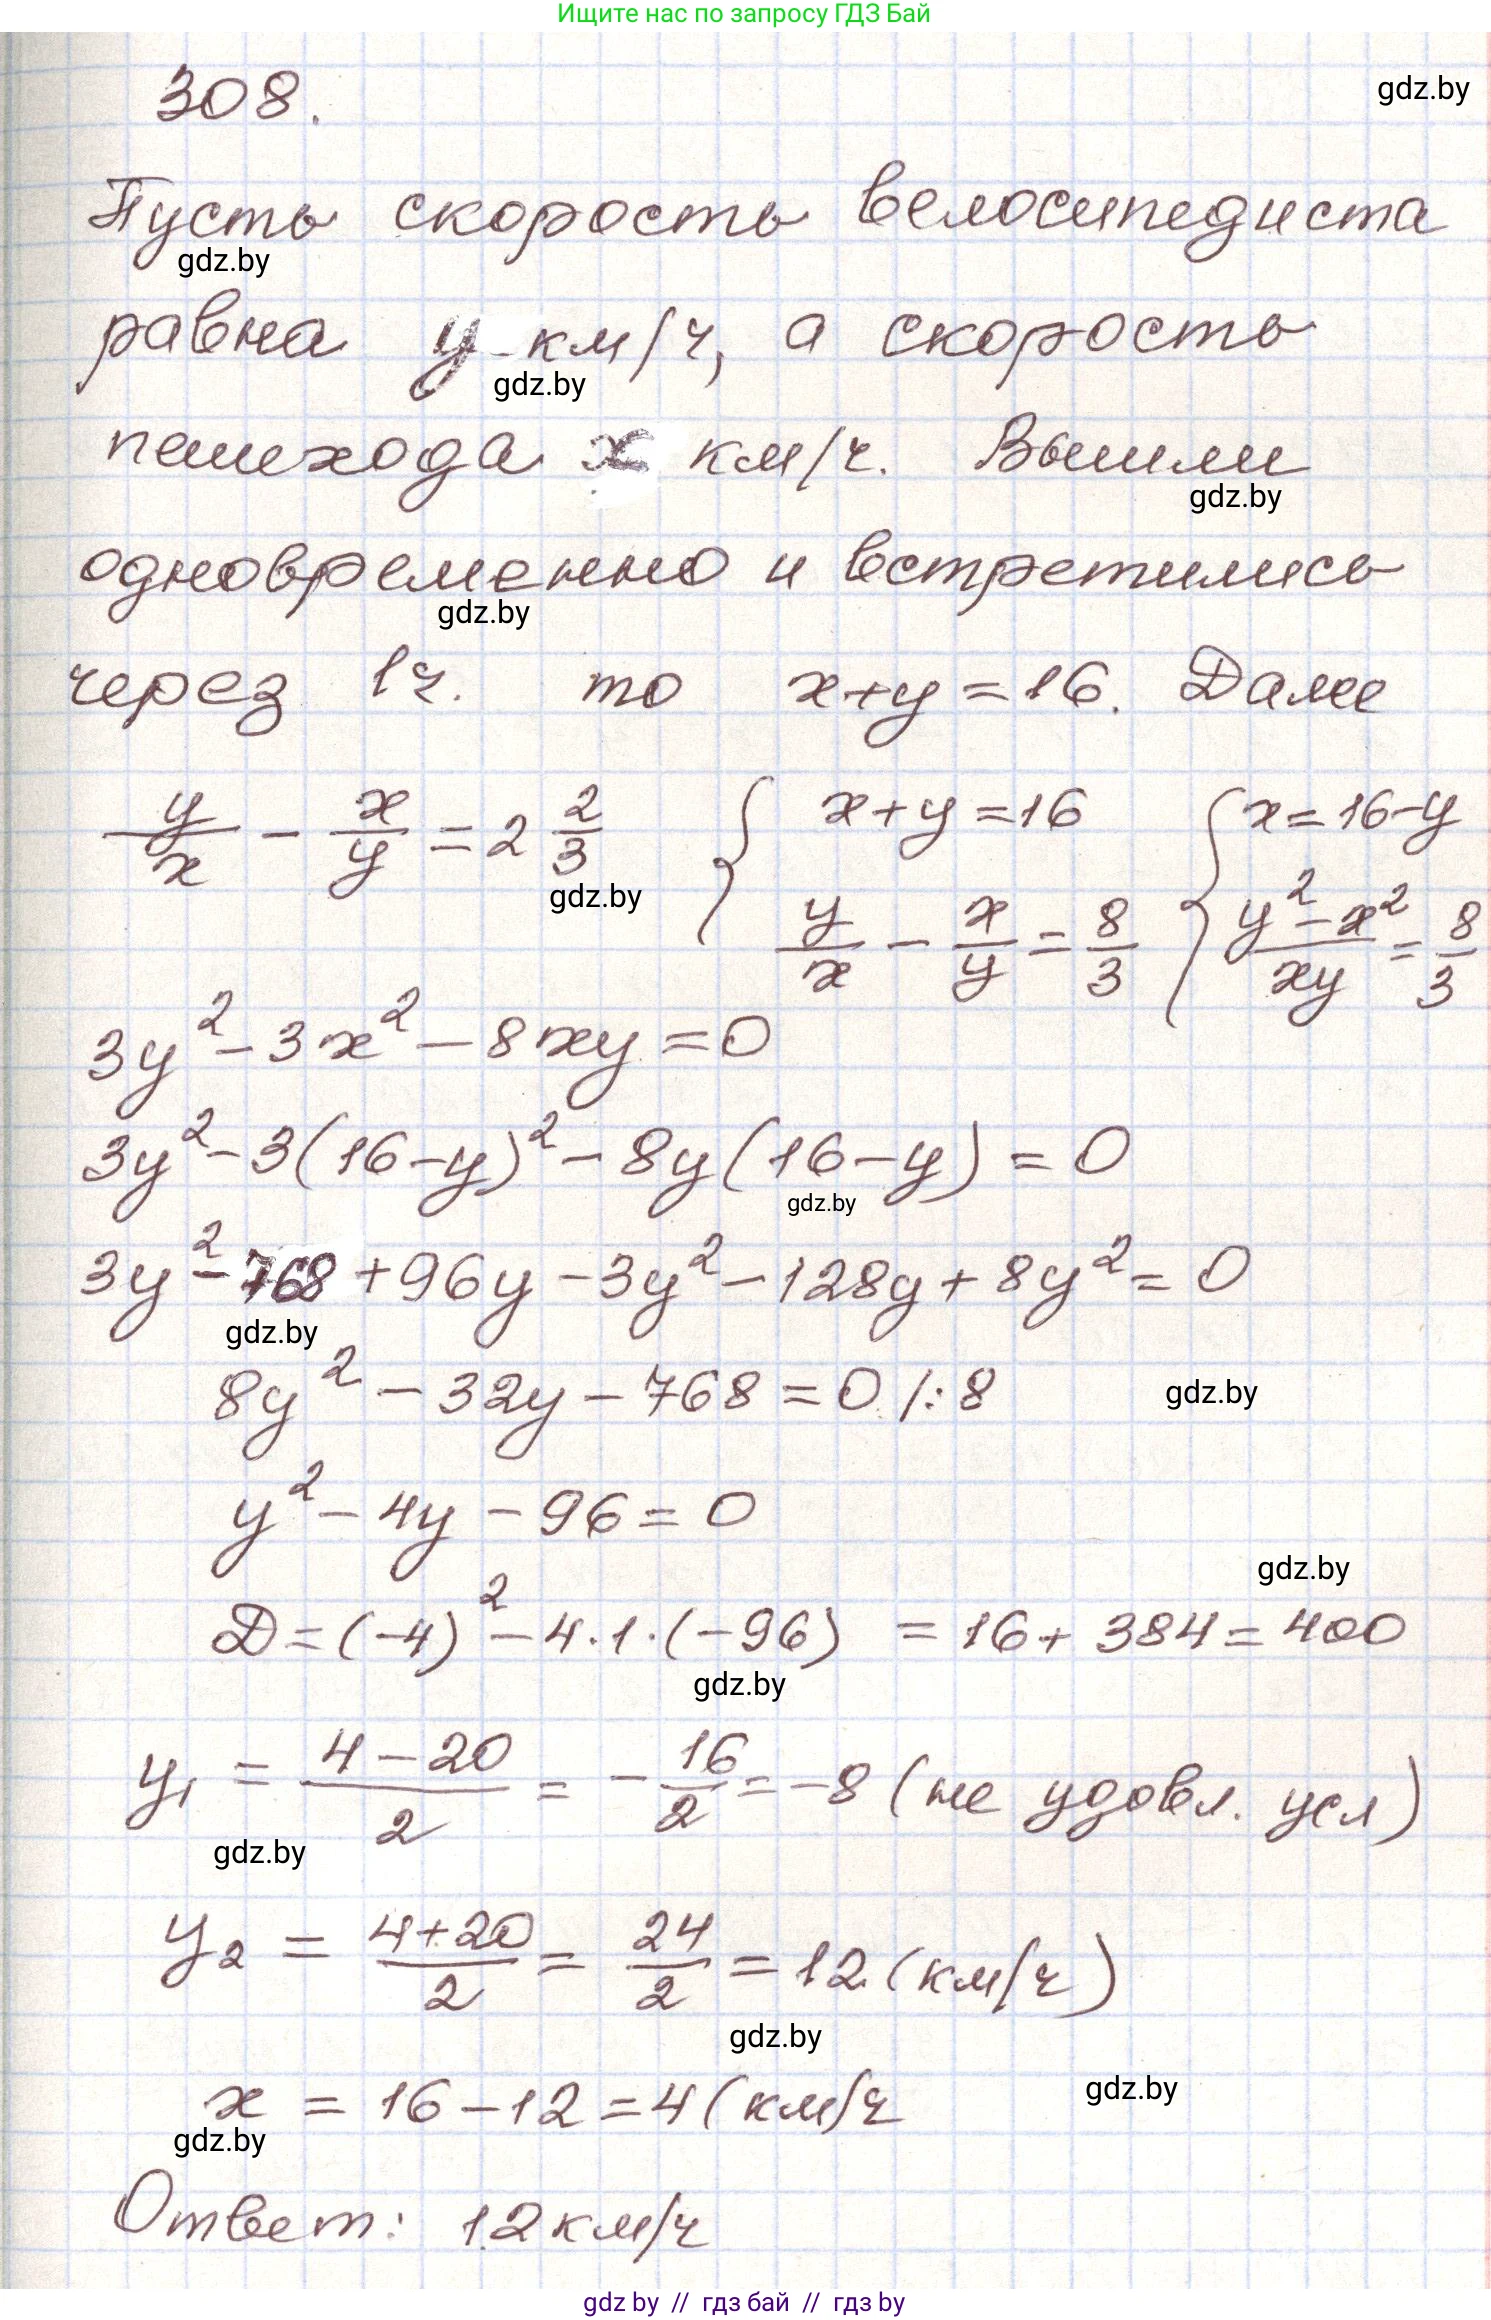 Ищите нас по запросу ГДЗ Бай
308.
gdz.by
Пусть скорость велосипедиста
gdz.by
равна y км/ч, а скорость
gdz.by
пешехода x км/ч. Вышли
gdz.by
одновременно и встретились
gdz.by
через 1ч. то x+y=16. Далее
y/x - x/y = 2 2/3 { x+y=16 { x=16-y
gdz.by
y/x - x/y = 8/3 (y²-x²)/xy = 8/3
3y²-3x²-8xy=0
3y²-3(16-y)²-8y(16-y)=0
gdz.by
3y²-768+96y-3y²-128y+8y²=0
gdz.by
8y²-32y-768=0 /:8
gdz.by
y²-4y-96=0
gdz.by
D=(-4)²-4·1·(-96) =16+384=400
gdz.by
y₁ = (4-20)/2 = -16/2 = -8 (не удовл. усл)
gdz.by
y₂ = (4+20)/2 = 24/2 = 12 (км/ч)
gdz.by
x = 16-12=4 (км/ч
gdz.by
gdz.by
Ответ: 12км/ч
gdz.by // гдз бай // гдз by